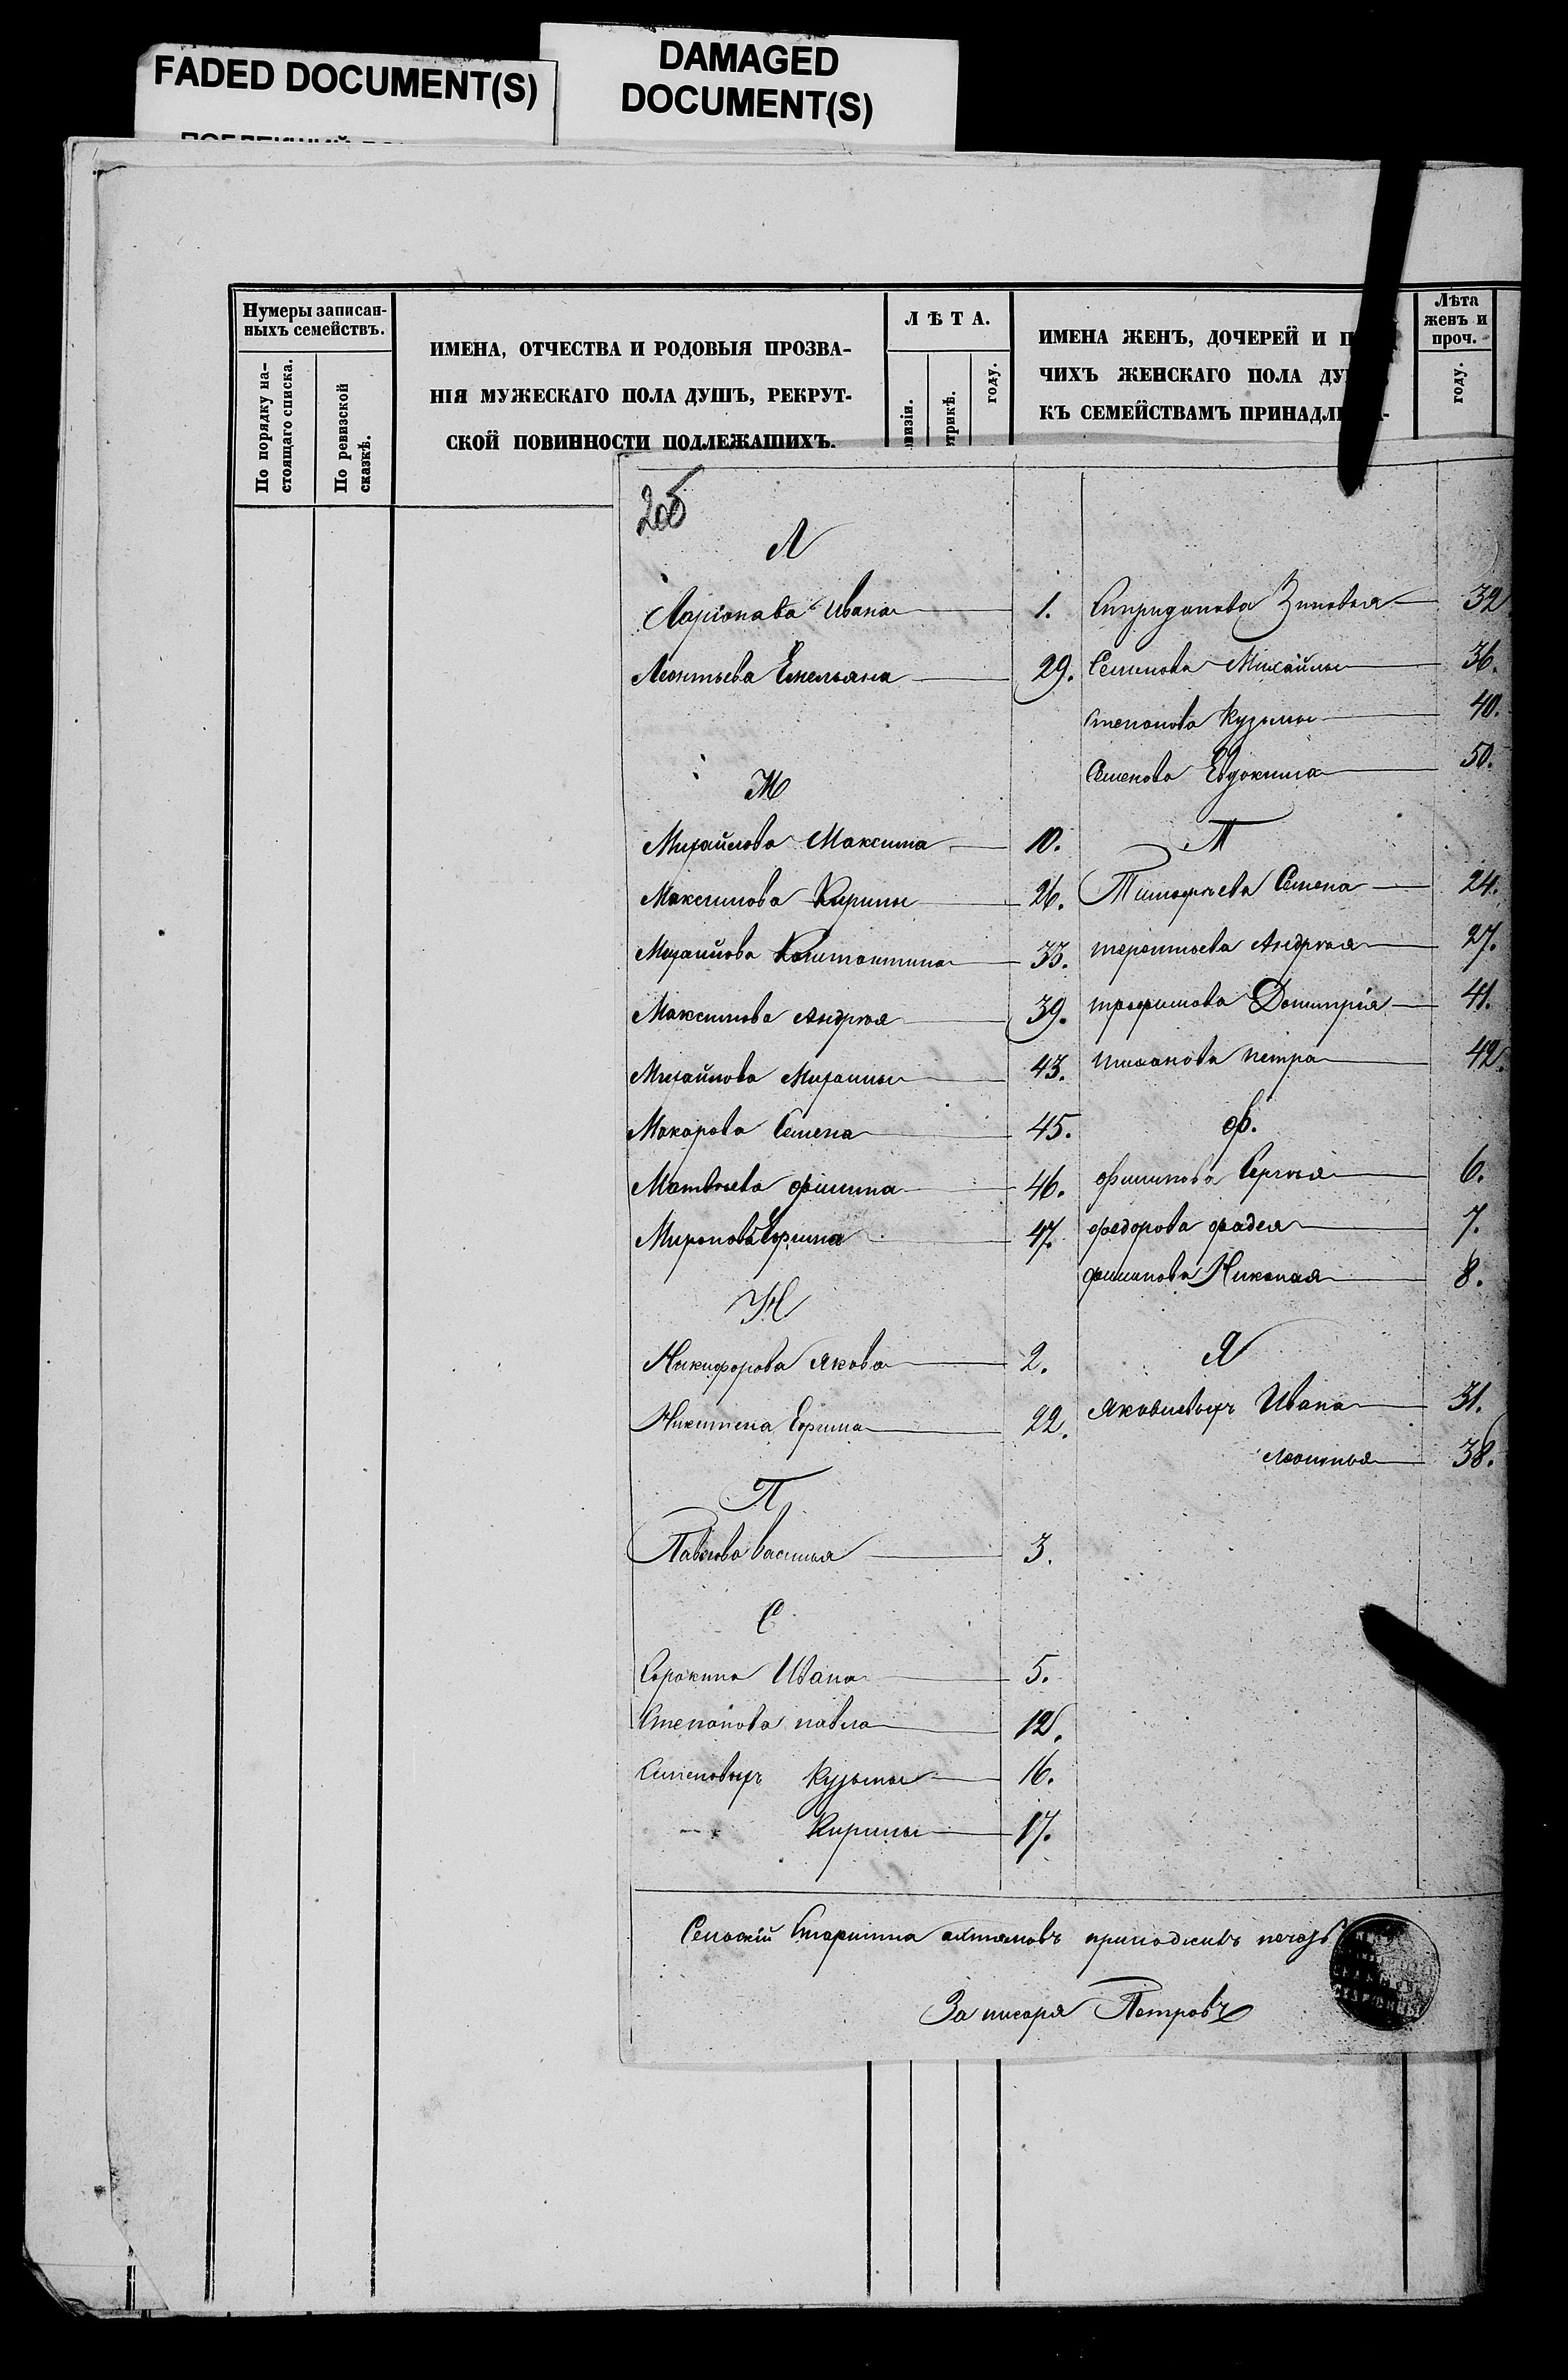 FADED DOCUMENT(S)
DAMAGED
DOCUMENT(S)
Нумеры записан-
ныхъ семействъ.
По порядку на-
стоящаго списка.
По ревизской
сказкѣ.
ИМЕНА, ОТЧЕСТВА И РОДОВЫЯ ПРОЗВА-
НІЯ МУЖЕСКАГО ПОЛА ДУШЪ, РЕКРУТ-
СКОЙ ПОВИННОСТИ ПОДЛЕЖАЩИХЪ.
ЛѢТА.
году.
ИМЕНА ЖЕНЪ, ДОЧЕРЕЙ И П
ЧИХЪ ЖЕНСКАГО ПОЛА ДУ
КЪ СЕМЕЙСТВАМЪ ПРИНАДЛ
Лѣта
женъ и
проч.
году.
Л
Ларіонава Ивана 1.
Леонтьева Емельяна 29.
М
Михайлова Максима 10.
Максимова Кирилы 26.
Михайлова Константина 33.
Максимова Андрея 39.
Михайлова Михаилы 43.
Макарова Семена 45.
Матвѣева Филипа 46.
Миронова Ефима 47.
Н
Никифорова Якова 2.
Никитена Ефима 22.
П
Павлова Василья 3.
С
Сорокина Ивана 5.
Степанова павла 12.
Семеновыхъ Кузьмы 16.
Кирилы 17.
Спиридонова Зиновья 32
Семенова Михайлы 36.
Степанова Кузьмы 40.
Семенова Евдокима 50.
Т
Тимофѣева Семена 24.
терентьева Андрея 27.
трофимова Дмитрія 41.
тиханова петра 42.
Ф.
Филипова Сергѣя 6.
федорова фадея 7.
филипова Николая 8.
Я
Яковлевыхъ Ивана 31.
леонтья 38.
Сельскій Старшина приложилъ печать
За писаря Петровъ